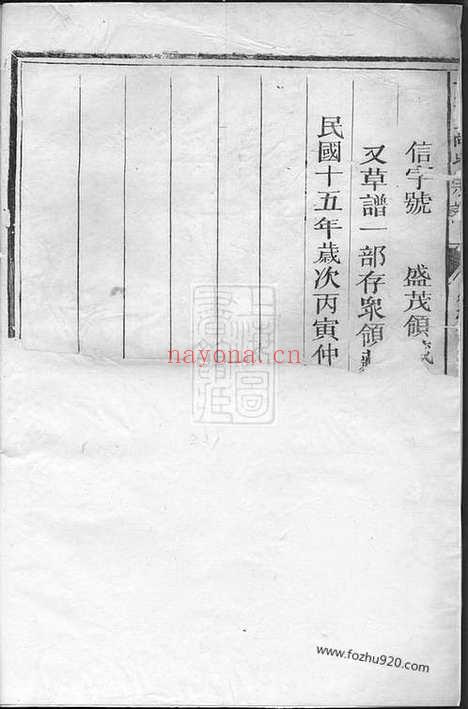 信字號 盛茂領
又草譜一部存衆領
民國十五年歲次丙寅仲
nayona.cn
www.fozhu920.com